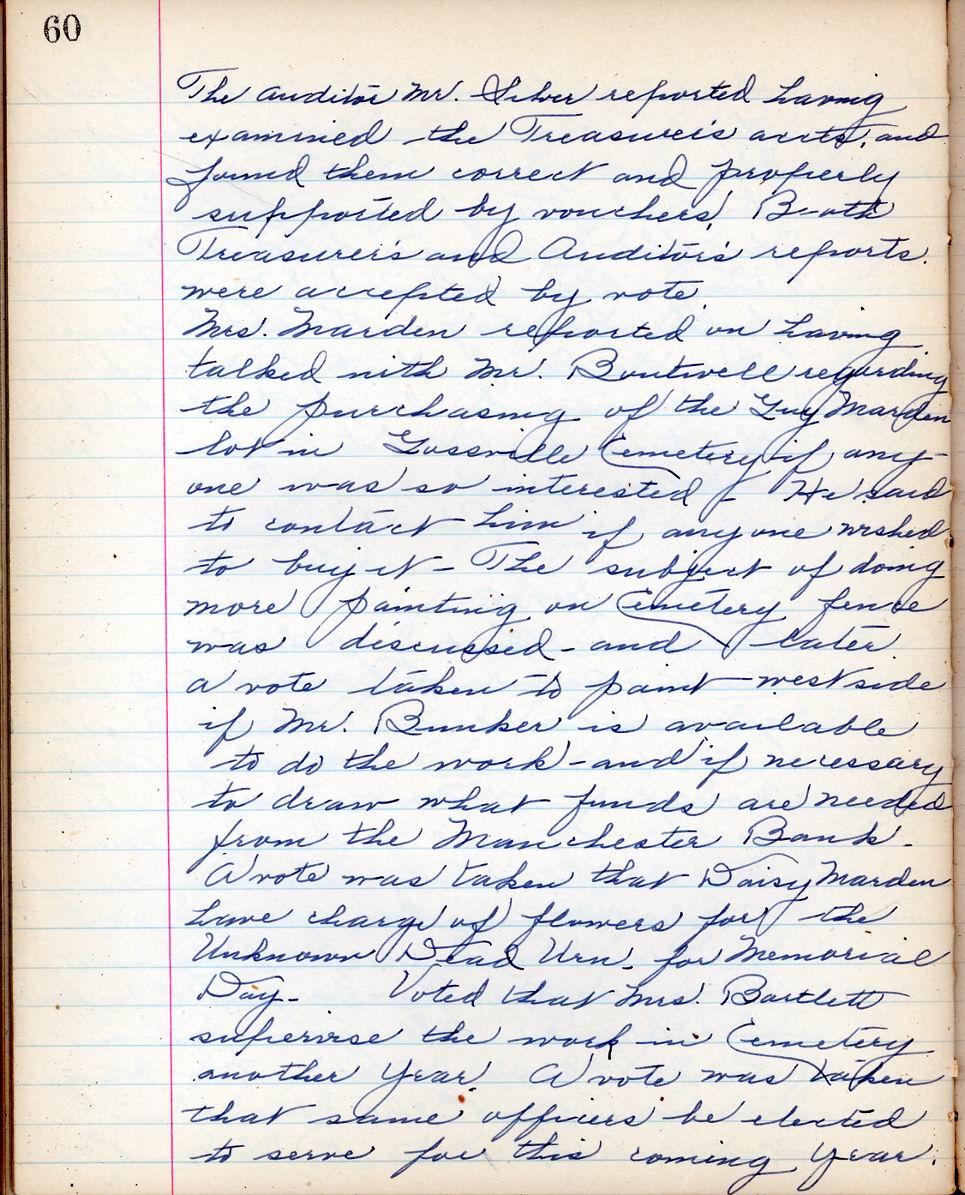 60
The auditor Mr. Silver reported having
examined the Treasurer's accts, and
found them correct and properly
supported by vouchers. Both
Treasurer's and Auditor's reports.
were accepted by vote.
Mrs. Marden reported on having
talked with Mr. Boutwell regarding
the purchasing of the Guy Marden
lot in Gossville Cemetery if any-
one was so interested - He said
to contact him if anyone wished
to buy it - The subject of doing
more painting on Cemetery fence
was discussed - and later
a vote taken to paint west side
if Mr. Bunker is available
to do the work - and if necessary
to draw what funds are needed
from the Manchester Bank -
A vote was taken that Daisy Marden
have charge of flowers for the
Unknown Dead Urn - for Memorial
Day - Voted that Mrs. Bartlett
supervise the work in Cemetery
another year. A vote was taken
that same officers be elected
to serve for this coming year.